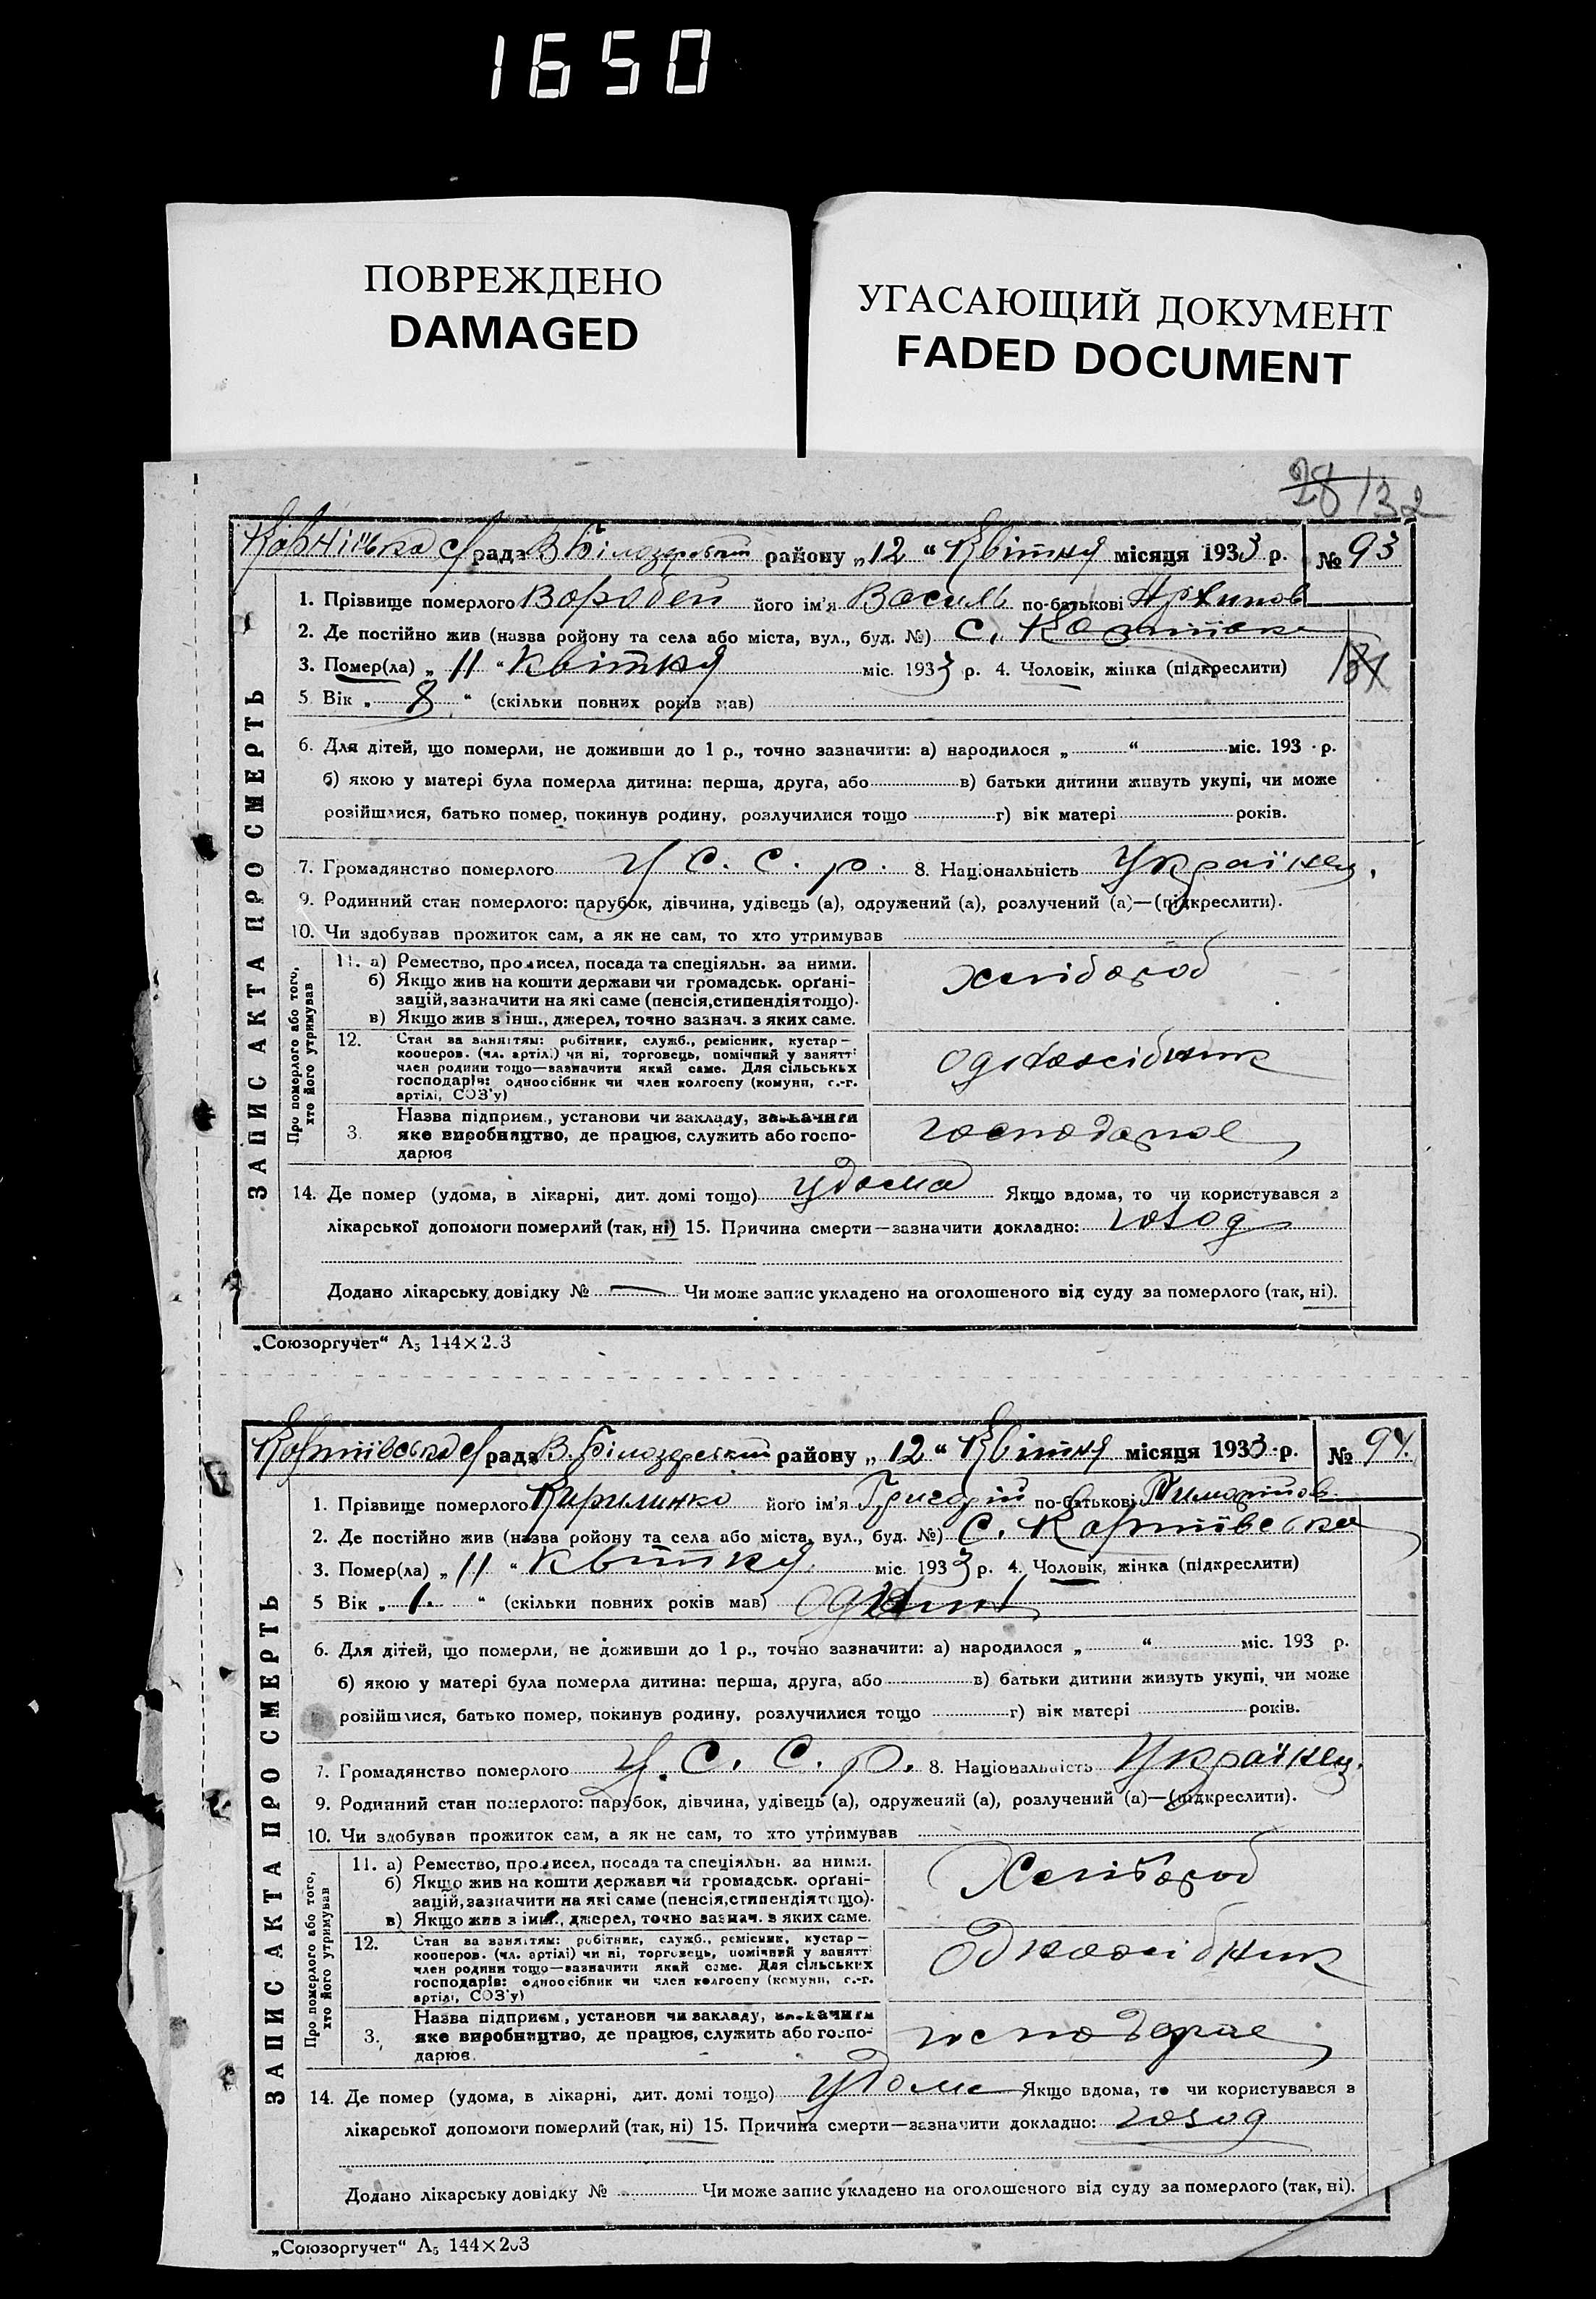 1650
ПОВРЕЖДЕНО
DAMAGED
УГАСАЮЩИЙ ДОКУМЕНТ
FADED DOCUMENT
28 132
рада В Білозерський району „12“ Квітня місяця 1933 р. № 93
ЗАПИС АКТА ПРО СМЕРТЬ
1. Прізвище померлого Воробей його ім'я Василь по-батькові Архипов
2. Де постійно жив (назва ройону та села або міста, вул., буд. №) с.
3. Помер(ла) „11“ квітня міс. 1933 р. 4. Чоловік, жінка (підкреслити)
5 Вік „8“ (скільки повних років мав)
6. Для дітей, що померли, не доживши до 1 р., точно зазначити: а) народилося „ “ міс. 193 р.
б) якою у матері була померла дитина: перша, друга, або в) батьки дитини живуть укупі, чи може
розійшлися, батько помер, покинув родину, розлучилися тощо г) вік матері років.
7. Громадянство померлого У С. С. р. 8. Національність Українец
9. Родинний стан померлого: парубок, дівчина, удівець (а), одружений (а), розлучений (а)—(підкреслити).
10. Чи здобував прожиток сам, а як не сам, то хто утримував
Про померлого або того, хто його утримував
11. а) Ремество, промисел, посада та спеціяльн. за ними.
б) Якщо жив на кошти держави чи громадськ. орґані-
зацій, зазначити на які саме (пенсія, стипендія тощо).
в) Якщо жив з інш., джерел, точно зазнач. з яких саме.
хлібороб
12. Стан за заняттям: робітник, служб., ремісник, кустар—
кооперов. (чл. артілі) чи ні, торговець, помічний у занятті
член родини тощо—зазначити який саме. Для сільських
господарів: одноосібник чи член колгоспу (комуни, с.-г.
артілі, СОЗ'у)
одноосібник
3. Назва підприєм., установи чи закладу, зазначити
яке виробництво, де працює, служить або госпо-
дарює
господарює
14. Де помер (удома, в лікарні, дит. домі тощо) удома Якщо вдома, то чи користувався з
лікарської допомоги померлий (так, ні) 15. Причина смерти—зазначити докладно: голод
Додано лікарську довідку № — Чи може запис укладено на оголошеного від суду за померлого (так, ні).
„Союзоргучет“ А5 144×203
рада В. Білозерський району „12“ Квітня місяця 1933 р. № 94.
ЗАПИС АКТА ПРО СМЕРТЬ
1. Прізвище померлого Кирилинко його ім'я Григорій по-батькові
2. Де постійно жив (назва ройону та села або міста, вул., буд. №) с.
3. Помер(ла) „11“ квітня міс. 1933 р. 4. Чоловік, жінка (підкреслити)
5 Вік „1.“ (скільки повних років мав)
6. Для дітей, що померли, не доживши до 1 р., точно зазначити: а) народилося „ “ міс. 193 р.
б) якою у матері була померла дитина: перша, друга, або в) батьки дитини живуть укупі, чи може
розійшлися, батько помер, покинув родину, розлучилися тощо г) вік матері років.
7. Громадянство померлого У. С. С. р. 8. Національність Українец.
9. Родинний стан померлого: парубок, дівчина, удівець (а), одружений (а), розлучений (а)—(підкреслити).
10. Чи здобував прожиток сам, а як не сам, то хто утримував
Про померлого або того, хто його утримував
11. а) Ремество, промисел, посада та спеціяльн. за ними.
б) Якщо жив на кошти держави чи громадськ. орґані-
зацій, зазначити на які саме (пенсія, стипендія тощо).
в) Якщо жив з інш., джерел, точно зазнач. з яких саме.
Хлібороб
12. Стан за заняттям: робітник, служб., ремісник, кустар—
кооперов. (чл. артілі) чи ні, торговець, помічний у занятті
член родини тощо—зазначити який саме. Для сільських
господарів: одноосібник чи член колгоспу (комуни, с.-г.
артілі, СОЗ'у)
Одноосібник
3. Назва підприєм., установи чи закладу, зазначити
яке виробництво, де працює, служить або госпо-
дарює.
господарює
14. Де помер (удома, в лікарні, дит. домі тощо) удома Якщо вдома, то чи користувався в
лікарської допомоги померлий (так, ні) 15. Причина смерти—зазначити докладно: голод
Додано лікарську довідку № Чи може запис укладено на оголошеного від суду за померлого (так, ні).
„Союзоргучет“ А5 144×203